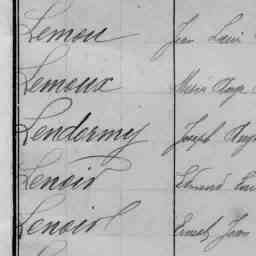 Lemou Jean Louis
Lemoux Marie Ange
Lendormy Joseph Ange
Lenoir Edmond
Lenoir Ernest Jean